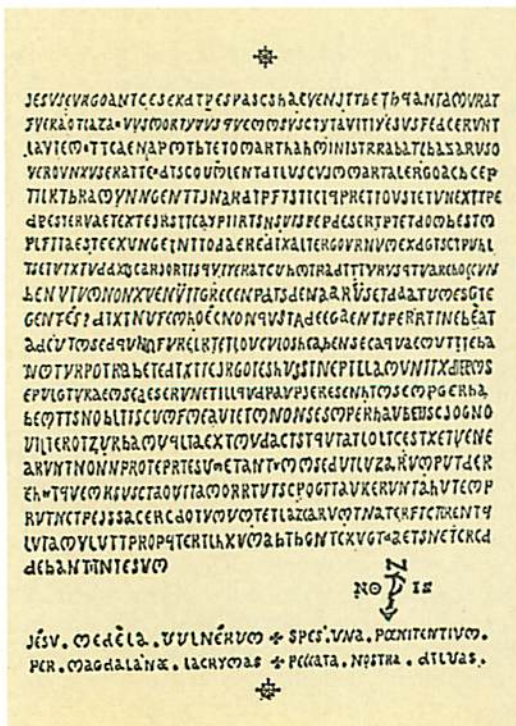 JESVSEVRGOANTCESEXATPESPASCSHAEVENJTTBETHQANTAMVRAT
FVERAOTIAZA·VVSMORTYVVSQVEMMSVSCTYTAVITIYESVSFEDCERVNT
LAVIEM·TTCAENAPMTBTETOMARTHAHMINISTRRABATLBAZARVSO
VEROVNXVSERATTE·DTSCOVMLENTATLIUSCVJMMARTALERGOACHCEP
TILKTBRAMYNNGENTTJNARDTPFTSTICIQPRETTOVSTETVNEXTTPE
DPESTERVAETEXTEJRSTTCAYPIIRTSNSVISPEPDESERTPTETDOMBESTM
PLFTTAESTEEXVNGEINTTODAEREDIXALTERGOVRNVMEXDGTSCTPVHL
TSETVTXTVDDXSCARJORTISQVIYERATCVHMTRADTTTVRVSQTVAREHOCCVN
LENVIVMNONXVENVIITGRECENPATSDENAARVSETDAATVMESGTE
GENTÉS? DIXTNVFEMHOÉCNONQVSTADEEGAENTSPERRTINEBÉAT
ADEVTMSEDQVHOFVRELRTETLOVCVIOSHCABENSECAQVAEMVTTIEBA
NMTVRPOTRABETEDIXTTEJRGOTESHVSSTNEPTLLAMVNITXDIEPMS
EPVLGTVRAEMSEAESERVNETILLQVDPAVPJERESENHTMSEMPGERHA
BEMTTSNOBLTISCVMFMEAVTETMNONSESMPERHAVBEUSCJOGNO
VILTEROTZVRBAMVQLTAEXTMVDACTSTQVTATLOLTCESTXETVENE
ARVNTNONNPROTEPRTESU=ETANTVMMSEDVTLVZARVMPVTDER
EH=TQVEMKSVSCTAOVITAMORRTVTSCPOGTTAVKERVNTAHVTEMP
RVTNCTPEJSSACERCDOTVMVMTETLAZCARVMTNATERFTCRENTQ
LVTAMYLVTTPROPQTERTLHXVMABTHGNTCXVGT·AETSNETCRCD
DEBANTTNTESVM
NO IS
JÉSV. MEDÈLA. VVLNÉRVM ✤ SPES. VNA. PŒNITENTIVM.
PER. MAGDALANÆ. LACRYMAS ✤ PECCATA. NOSTRA. DILVAS.